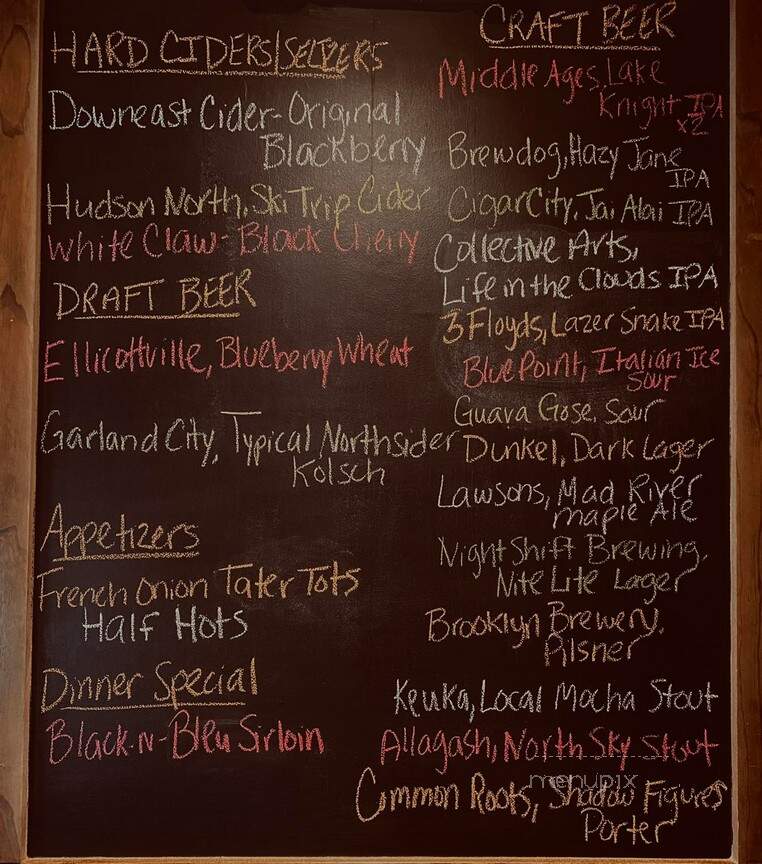 HARD CIDERS/SELTZERS
Downeast Cider-Original
Blackberry
Hudson North, Ski Trip Cider
White Claw-Black Cherry
DRAFT BEER
Ellicottville, Blueberry Wheat
Garland City, Typical Northsider
Kolsch
Appetizers
French Onion Tater Tots
Half Hots
Dinner Special
Black-N-Bleu Sirloin
CRAFT BEER
Middle Ages, Lake
Knight IPA
x2
Brewdog, Hazy Jane
IPA
Cigar City, Jai Alai IPA
Collective Arts,
Life in the Clouds IPA
3 Floyds, Lazer Snake IPA
Blue Point, Italian Ice
Sour
Guava Gose, Sour
Dunkel, Dark Lager
Lawsons, Mad River
maple Ale
Night Shift Brewing,
Nite Lite Lager
Brooklyn Brewery,
Pilsner
Keuka, Local Mocha Stout
Allagash, North Sky Stout
menupix
Common Roots, Shadow Figures
Porter